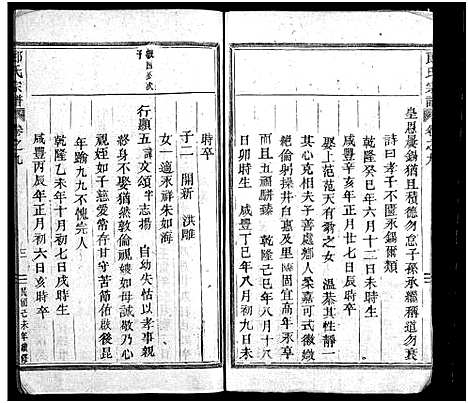 郎氏宗譜 卷之九
皇恩屢錫猶且積德勿怠子孫承繼道勿衰
詩曰孝子不匱永錫爾類
乾隆癸巳年六月十二日時生
咸豐辛亥年正月廿七日辰時卒
娶上范范天有翁之女 溫恭其性靜一
其心克相夫子善處鄉人柔嘉可式徽徽
絕倫躬操井臼惠及里閭固宜高年永卒
而且五福駢臻 乾隆己巳年八月十八
日卯時生 咸豐丁巳年八月初九日未
時卒
子二 開新 洪雕
女一 適永祥朱如海
行顯五 諱文頌 字志揚 自幼失怙以孝事親
將身不娶猶然敦倫視嫂如母誠敬乃心
視姪如子慈愛常存甘守苦節佑啟後昆
年踰九九不愧完人
乾隆乙未年十月初七日戌時生
咸豐丙辰年正月初六日亥時卒
郎氏宗譜 卷之九
三
咸豐己未年續修